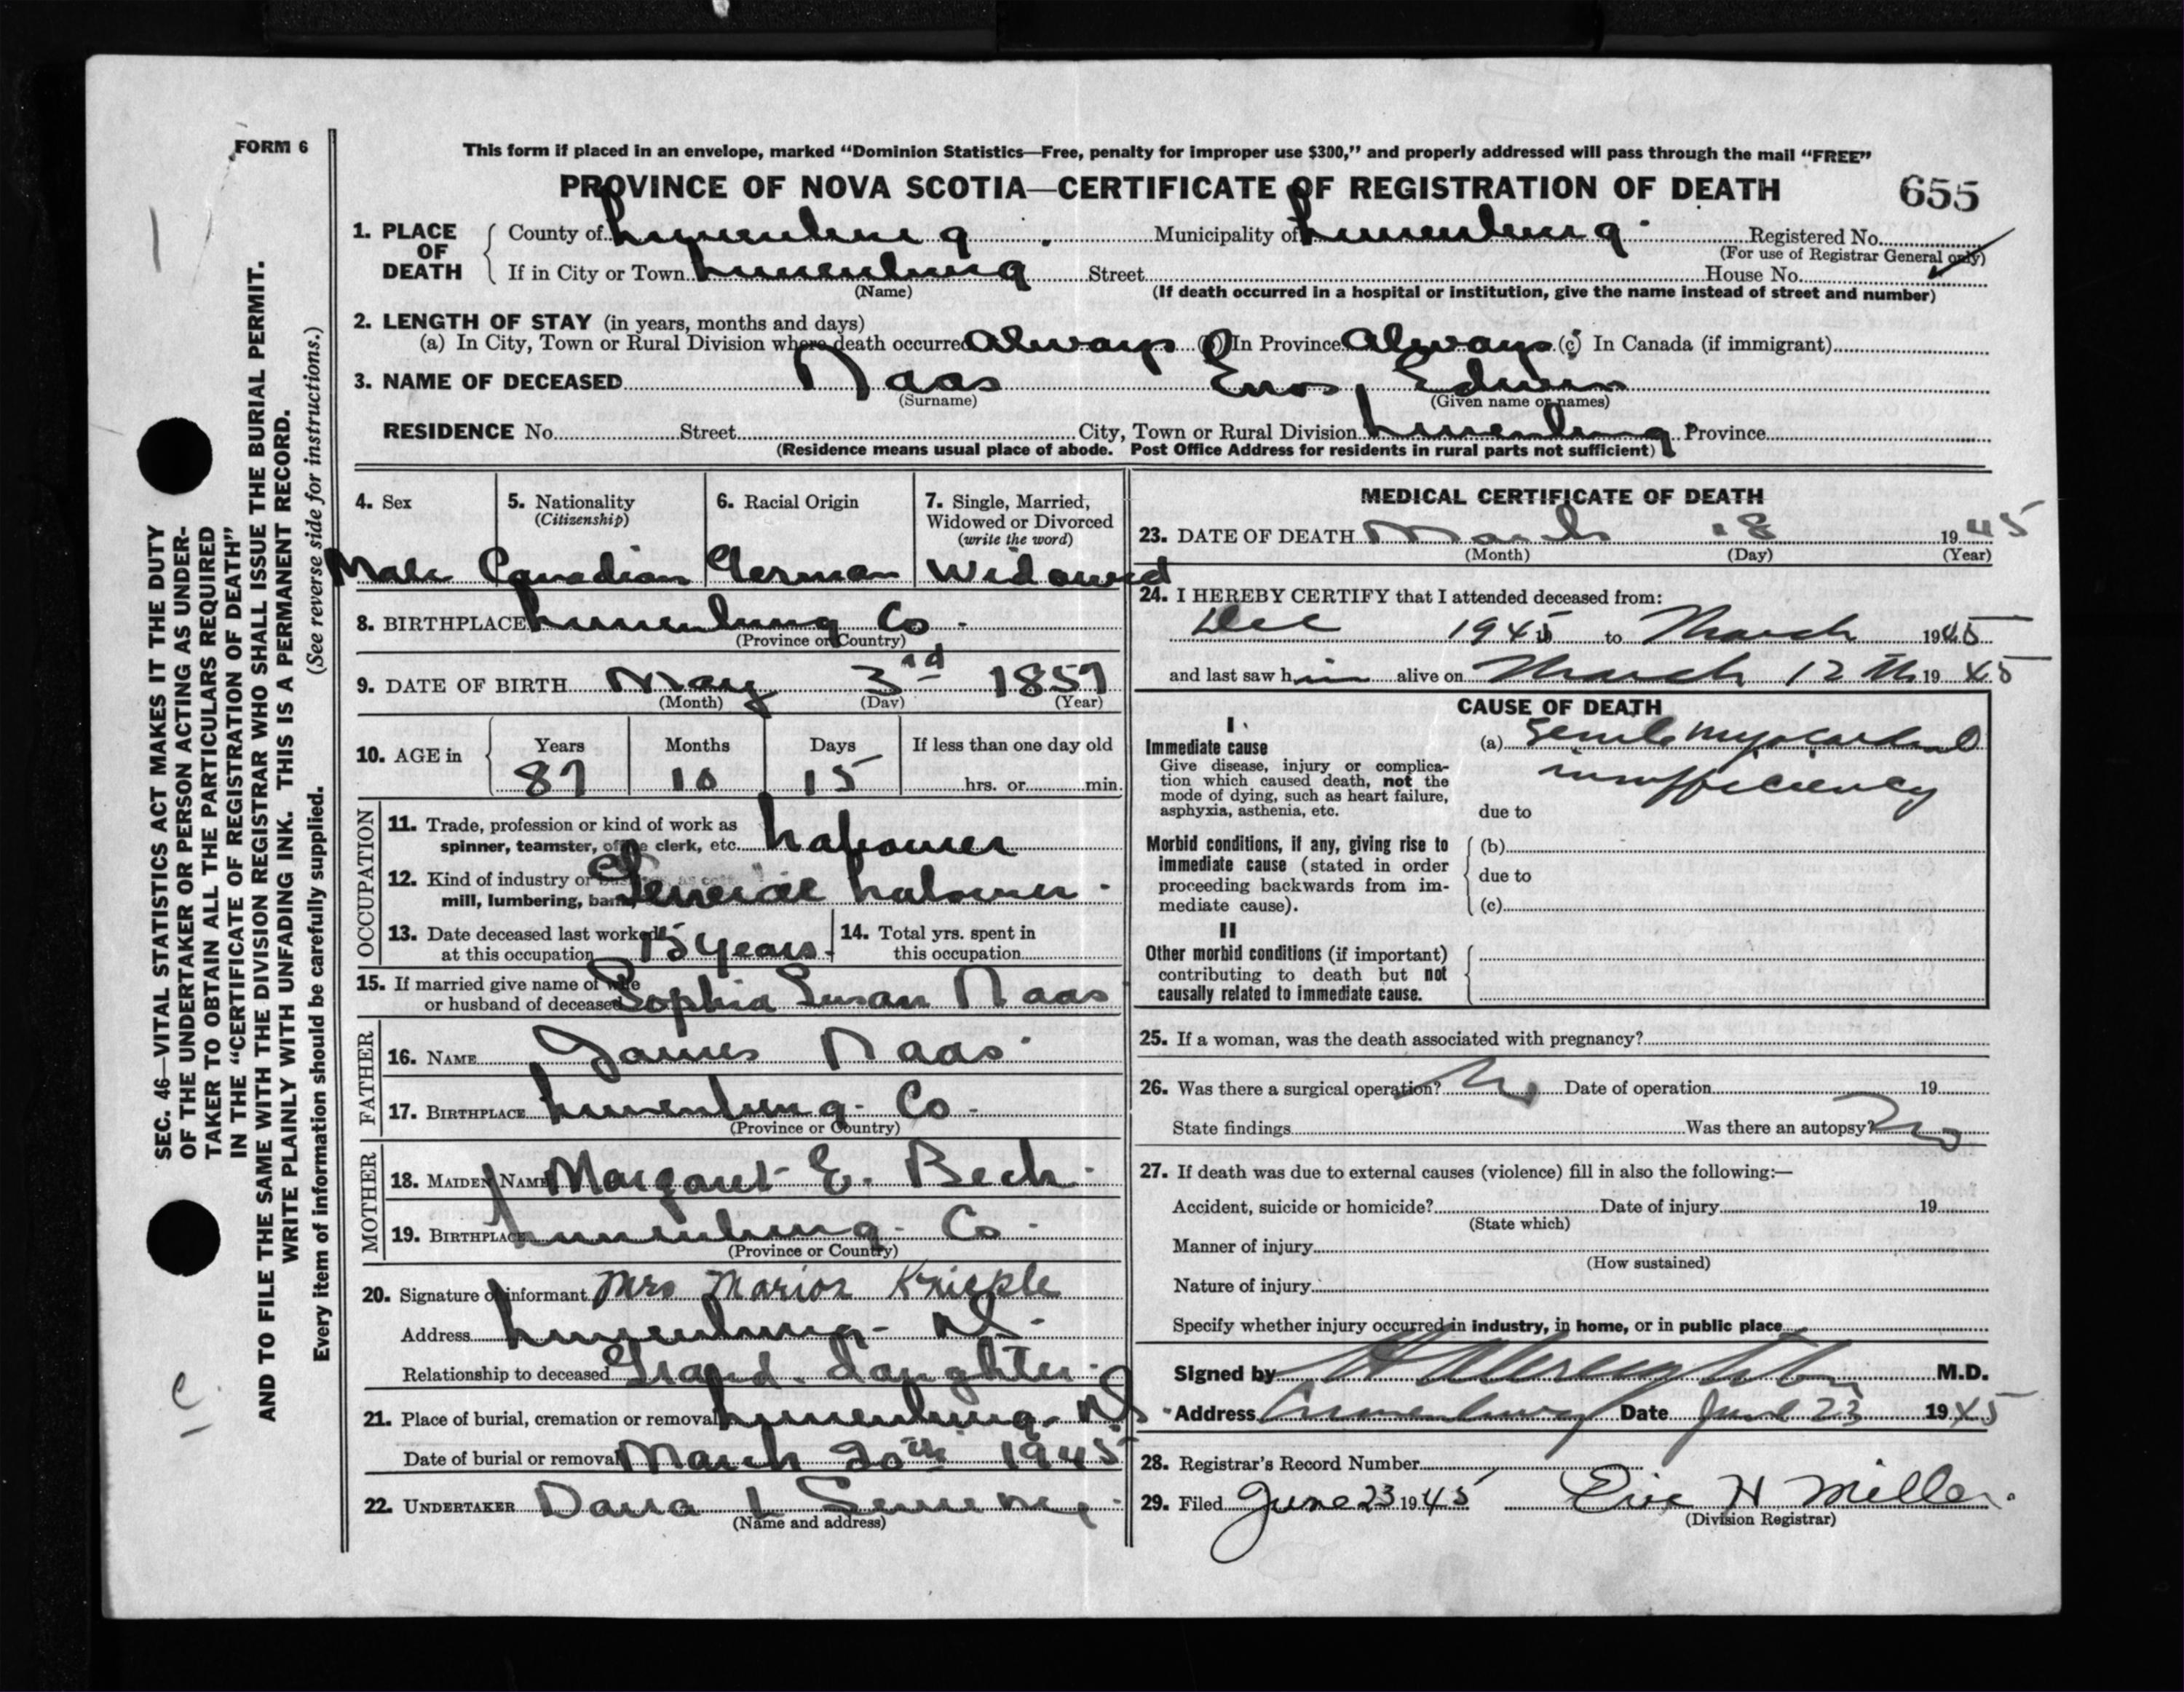 FORM 6
This form if placed in an envelope, marked “Dominion Statistics—Free, penalty for improper use $300,” and properly addressed will pass through the mail “FREE”
PROVINCE OF NOVA SCOTIA—CERTIFICATE OF REGISTRATION OF DEATH 655
1. PLACE OF DEATH
County of Lunenburg Municipality of Lunenburg Registered No.
(For use of Registrar General only)
If in City or Town Lunenburg Street House No.
(Name) (If death occurred in a hospital or institution, give the name instead of street and number)
2. LENGTH OF STAY (in years, months and days)
(a) In City, Town or Rural Division where death occurred Always (b) In Province Always (c) In Canada (if immigrant)
3. NAME OF DECEASED Naas Enos, Edwin
(Surname) (Given name or names)
RESIDENCE No. Street City, Town or Rural Division Lunenburg Province
(Residence means usual place of abode. Post Office Address for residents in rural parts not sufficient)
4. Sex 5. Nationality (Citizenship) 6. Racial Origin 7. Single, Married, Widowed or Divorced (write the word)
Male Canadian German Widowed
8. BIRTHPLACE Lunenburg Co.
(Province or Country)
9. DATE OF BIRTH May 3rd 1857
(Month) (Day) (Year)
10. AGE in Years Months Days If less than one day old
87 10 15 hrs. or min.
OCCUPATION
11. Trade, profession or kind of work as
spinner, teamster, office clerk, etc. Labourer
12. Kind of industry or business, as cotton
mill, lumbering, bank, General Labourer.
13. Date deceased last worked
at this occupation 15 years.
14. Total yrs. spent in
this occupation
15. If married give name of wife
or husband of deceased Sophia Susan Naas
FATHER
16. NAME James Naas
17. BIRTHPLACE Lunenburg Co.
(Province or Country)
MOTHER
18. MAIDEN NAME Margaret E. Beck
19. BIRTHPLACE Lunenburg Co.
(Province or Country)
20. Signature of informant Mrs Marion Knickle
Address Lunenburg NS.
Relationship to deceased Grand. daughter.
21. Place of burial, cremation or removal Lunenburg. NS
Date of burial or removal March 20th 1945
22. UNDERTAKER Dana L Sweeney
(Name and address)
MEDICAL CERTIFICATE OF DEATH
23. DATE OF DEATH March 18 1945
(Month) (Day) (Year)
24. I HEREBY CERTIFY that I attended deceased from:
Dec 194 to March 1945
and last saw him alive on March 12th 1945
CAUSE OF DEATH
I
Immediate cause
Give disease, injury or complica-
tion which caused death, not the
mode of dying, such as heart failure,
asphyxia, asthenia, etc.
(a) Senile Myocardial
insufficiency
due to
Morbid conditions, if any, giving rise to
immediate cause (stated in order
proceeding backwards from im-
mediate cause).
(b)
due to
(c)
II
Other morbid conditions (if important)
contributing to death but not
causally related to immediate cause.
25. If a woman, was the death associated with pregnancy?
26. Was there a surgical operation? No Date of operation 19
State findings Was there an autopsy? No
27. If death was due to external causes (violence) fill in also the following:—
Accident, suicide or homicide? Date of injury 19
(State which)
Manner of injury
(How sustained)
Nature of injury
Specify whether injury occurred in industry, in home, or in public place
Signed by M.D.
Address Lunenburg Date June 23 1945
28. Registrar's Record Number
29. Filed June 23 1945 Eric H Miller.
(Division Registrar)
SEC. 46—VITAL STATISTICS ACT MAKES IT THE DUTY
OF THE UNDERTAKER OR PERSON ACTING AS UNDER-
TAKER TO OBTAIN ALL THE PARTICULARS REQUIRED
IN THE “CERTIFICATE OF REGISTRATION OF DEATH”
AND TO FILE THE SAME WITH THE DIVISION REGISTRAR WHO SHALL ISSUE THE BURIAL PERMIT.
WRITE PLAINLY WITH UNFADING INK. THIS IS A PERMANENT RECORD.
Every item of information should be carefully supplied. (See reverse side for instructions.)